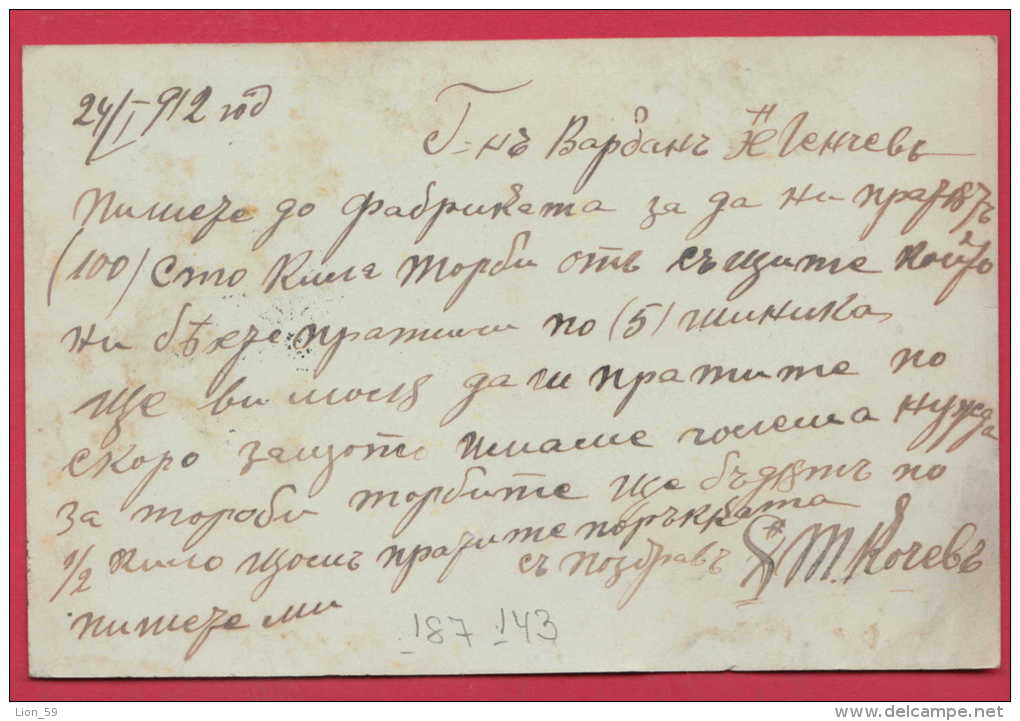 24/I 912 год
Г-нъ Варбанъ Генчевъ
пишете до фабриката за да ни пратятъ
(100) сто кила торби отъ същите които
ни бѣхте пратили по (5) шиника
ще ви моля да ги пратите по
скоро защото имаме голема нужда
за тороби торбите ще бъдятъ по
1/2 кило щомъ пратите поръчката
съ поздравъ Т. Кочевъ
пишете ми
187 143
Lion_59
www.delcampe.net